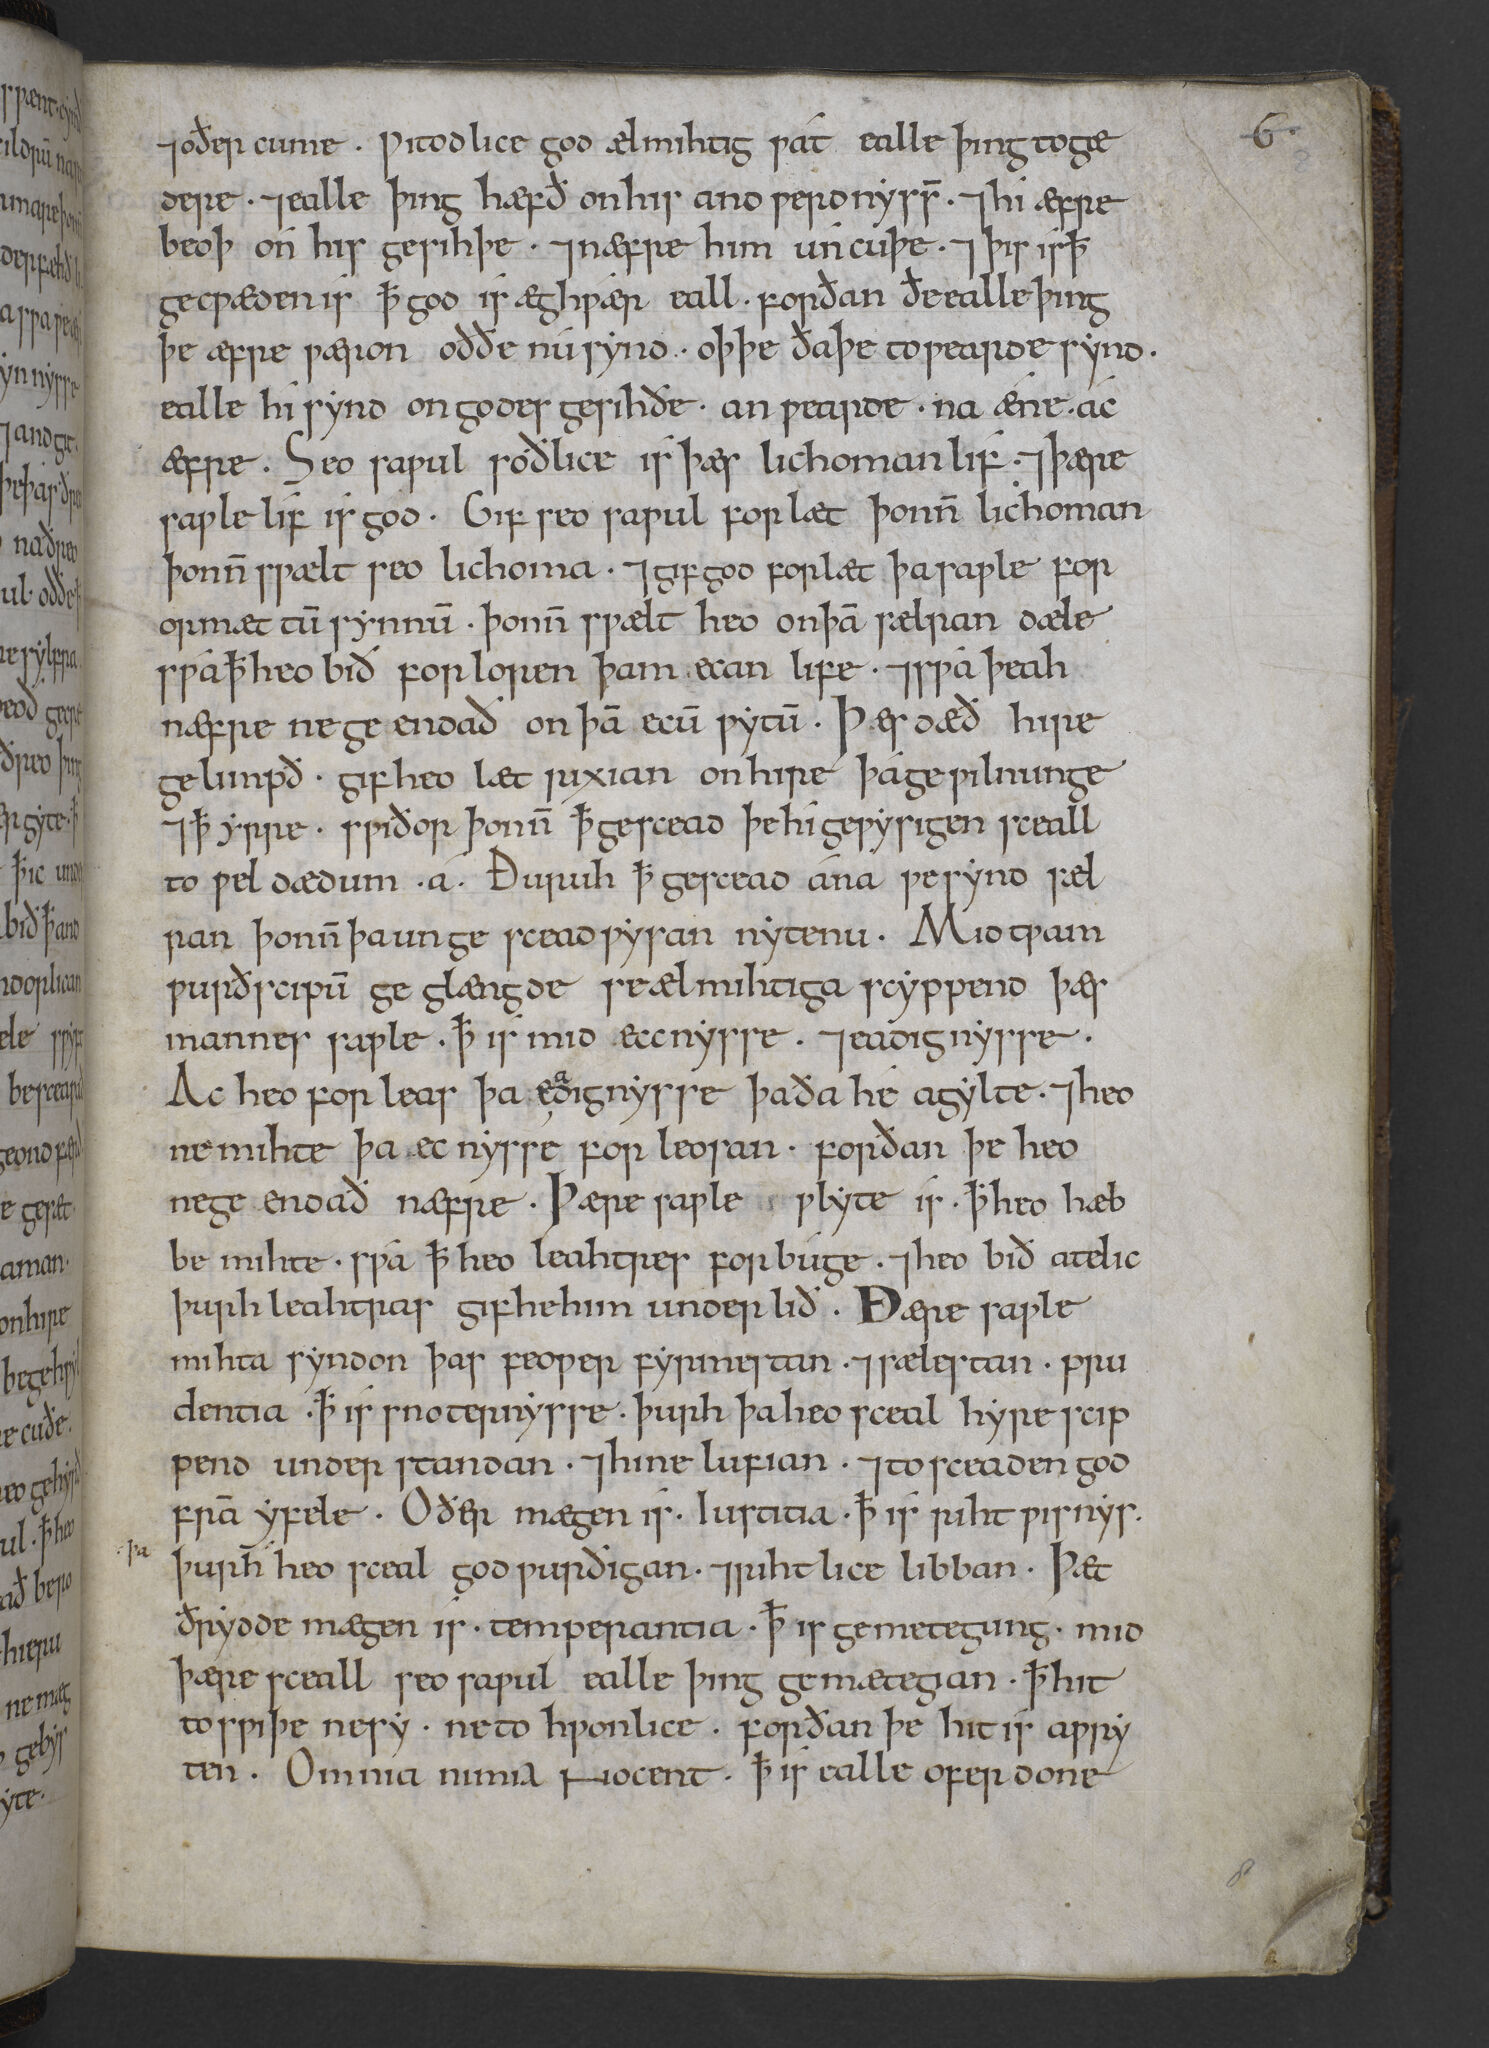 6
⁊oðer cume. ƿitodlice god ælmihtig ƿát ealle þing togæ
dere. ⁊ealle þing hæfð onhis andƿerdnẏss̄. ⁊hi æfre
beoþ ón his gesihþe. ⁊næfre him úncúþe. ⁊þis isꝥ
gecƿæden is ꝥ god is æghƿær eall. forðan ðeealleþing
þe æfre ƿæron oððe núsẏnd. oþþe ðaþe toƿearde sẏnd.
ealle hí sẏnd ongodes gesihðe. anƿearde. na ǽne. ác
æfre. Seo saƿul sóðlice is þæs lichoman lif. ⁊þære
saƿle líf is god. Gif seo saƿul forlæt þonn̄ lichoman
þonn̄ sƿælt seo lichoma. ⁊gif god forlæt þasaƿle for
ormæt tū sẏnnū. þonn̄ sƿælt heo onþā sælran dæle
sƿáꝥheo bið forloren þam ecan life. ⁊sƿá þeah
næfre ne ge endað on þā ecū ƿẏtū. Þæs dæð hire
gelimpð. gifheo læt rixian onhire þágeƿilnunge
⁊ꝥ ẏrre. sƿiðor þonn̄ ꝥgescead þehí geƿẏsigen sceall
to ƿel dædum. á. Ðuruh ꝥ gescead ána ƿesẏnd sæl
ran þonn̄þaunge sceadƿẏsan nẏtenu. Mid tƿam
ƿurðscipū ge glængde seælmihtiga scẏppend þæs
mannes saƿle. ꝥ is mid eccnẏsse. ⁊eadignẏsse.
Ac heo forleas þa eadignẏsse þaða hé agẏlte. ⁊heo
nemihte þa ecnẏsse forleosan. forðan þe heo
nege endað næfre. Þære saƿle ƿlẏte is. ꝥheo hæb
be mihte. sƿá ꝥ heo leahtres forbúge. ⁊heo bið atelic
þurh leahtras gifhehim underlið. Ðære saƿle
mihta sẏndon þas feoƿer fẏrmestan. ⁊sælestan. pru
dentia. ꝥ is snoternẏsse. þurh þaheo sceal hẏre scip
pend understandan. ⁊hine lufian. ⁊tosceaden god
frā ẏfele. Oðer mægen is. Iustitia. ꝥ is rihtƿisnẏs.
þa
þurh heo sceal god ƿurðigan. ⁊rihtlice libban. Þæt
ðrẏdde mægen is. temperantia. ꝥ is gemetegung. mid
þære sceall seo saƿul ealle þing gemætegian. ꝥhit
tosƿiþe nesẏ. neto hƿonlice. forðan þe hit is aƿrẏ
ten. Omnia nimia Nocent. ꝥ is ealle oferdone
8